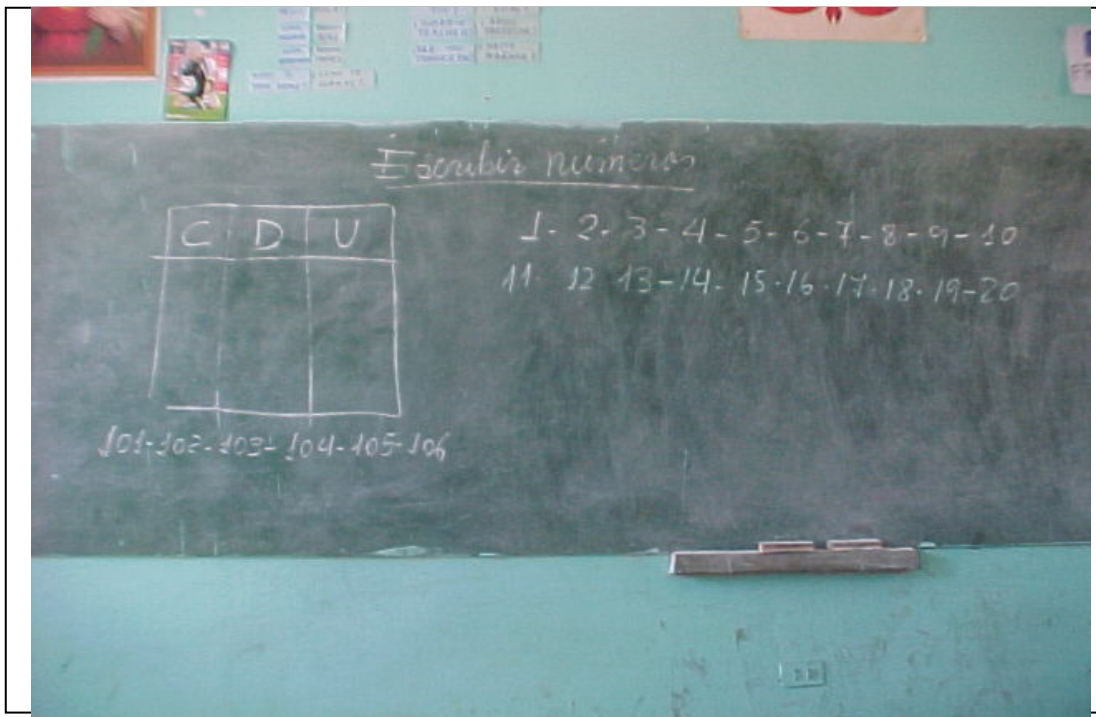 Escribir números
C D U
1 - 2 - 3 - 4 - 5 - 6 - 7 - 8 - 9 - 10
11 - 12 13 - 14 - 15 - 16 - 17 - 18 - 19 - 20
101 - 102 - 103 - 104 - 105 - 106